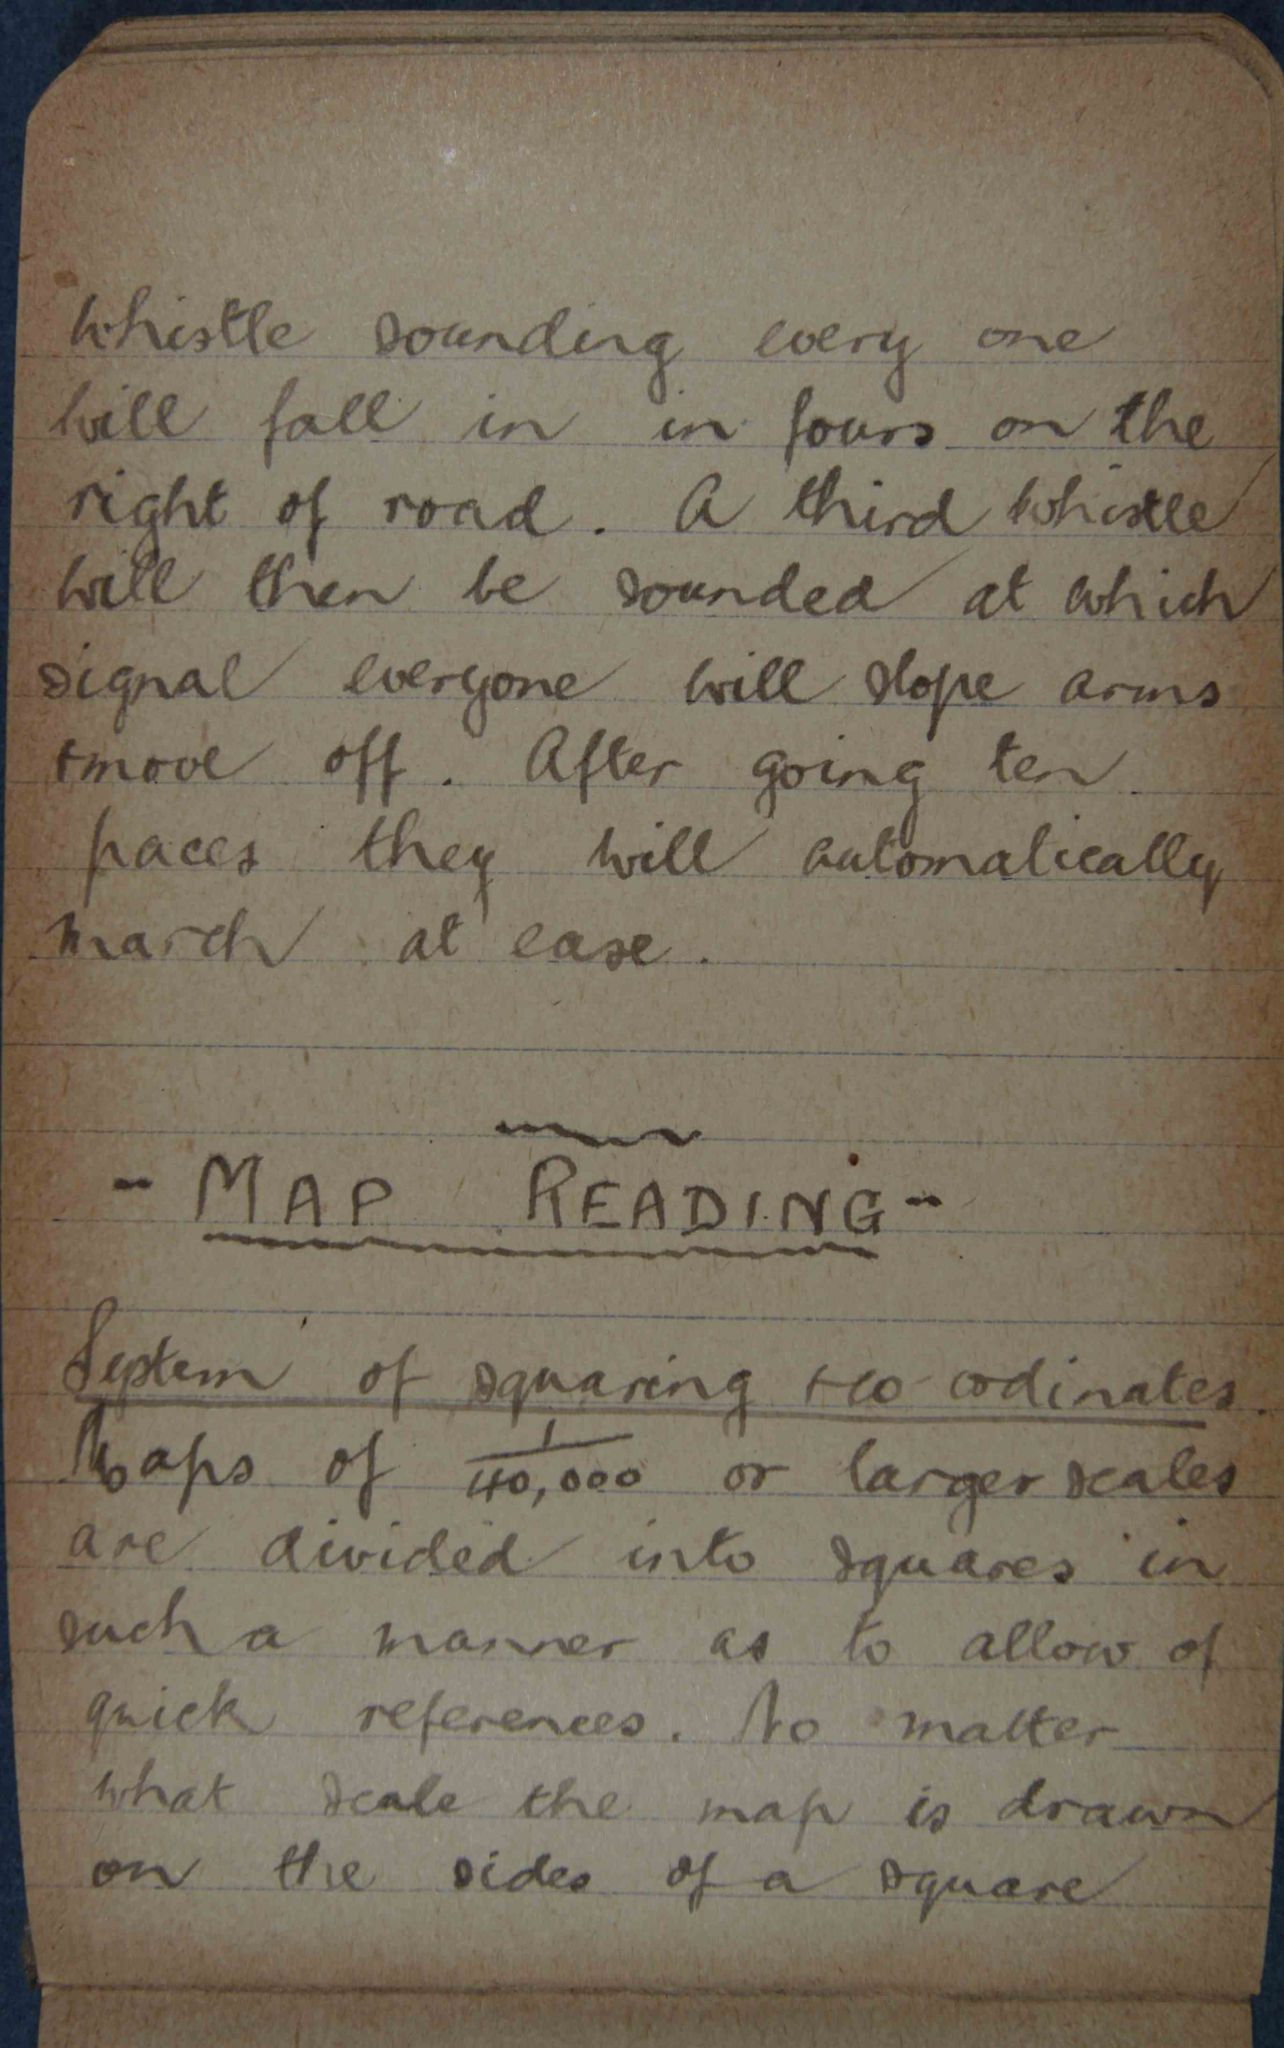 whistle sounding every one
will fall in in fours on the
right of road. A third whistle
will then be sounded at which
signal everyone will slope arms
+ move off. After going ten
paces they will automatically
march at ease.
- MAP READING -
System of squaring + co-ordinates.
Maps of 1/40,000 or larger scales
are divided into squares in
such a manner as to allow of
quick references. No matter
what scale the map is drawn
on the sides of a square